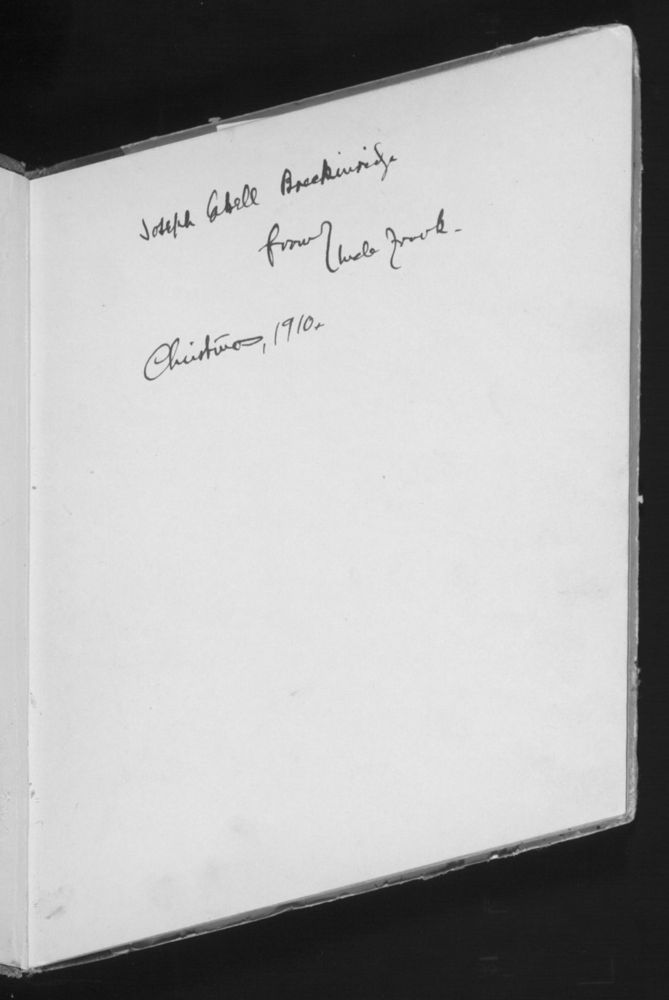 Joseph Cabell Breckinridge
from Uncle Frank.
Christmas, 1910.